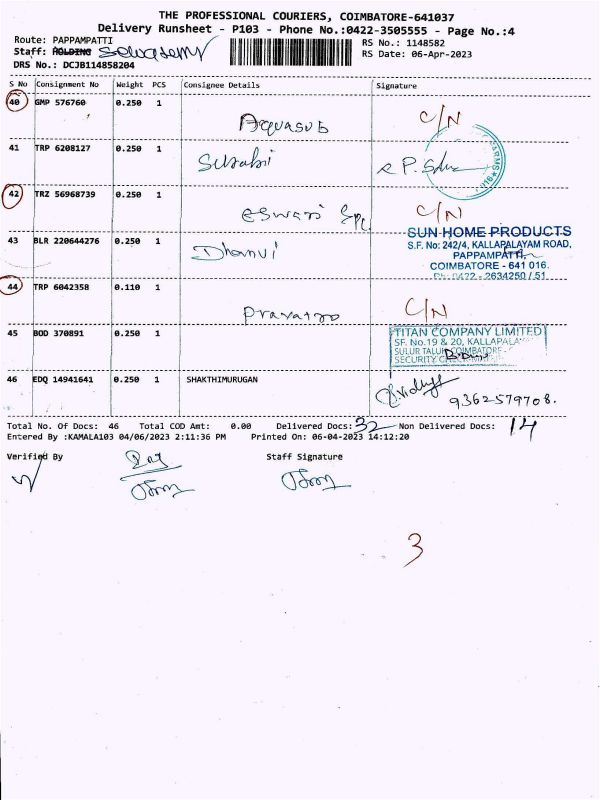 THE PROFESSIONAL COURIERS, COIMBATORE-641037
Delivery Runsheet - P103 - Phone No.:0422-3505555 - Page No.:4
Route: PAPPAMPATTI
Staff: HOLDING
RS No.: 1148582
RS Date: 06-Apr-2023
DRS No.: DCJB114858204
S No Consignment No Weight PCS Consignee Details Signature
40 GMP 576760 0.250 1 Aquasub C/N
41 TRP 6208127 0.250 1 Surabi
42 TRZ 56968739 0.250 1 eswari C/N
SUN HOME PRODUCTS
S.F. No: 242/4, KALLAPALAYAM ROAD,
43 BLR 220644276 0.250 1 Dhanvi
PAPPAMPATTI
COIMBATORE - 641 016.
Ph: 0422 - 2634250 / 51
44 TRP 6042358 0.110 1 C/N
45 BOD 370891 0.250 1
TITAN COMPANY LIMITED
SF. No.19 & 20, KALLAPALA
SULUR TALUK, COIMBATORE -
SECURITY
46 EDQ 14941641 0.250 1 SHAKTHIMURUGAN
9362579708.
Total No. Of Docs: 46 Total COD Amt: 0.00 Delivered Docs: 32 Non Delivered Docs: 14
Entered By :KAMALA103 04/06/2023 2:11:36 PM Printed On: 06-04-2023 14:12:20
Verified By Staff Signature
3